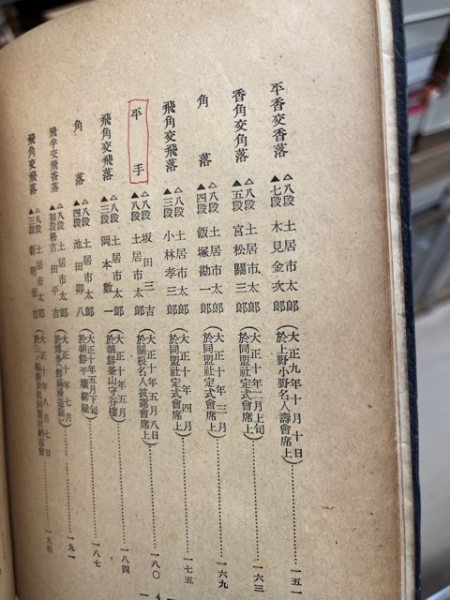 平香交香落
△八段 土居市太郎
▲七段 木見金次郎
(大正九年十月十日)
(於上野小野名人壽會席上)
一五一
香角交角落
△八段 土居市太郎
▲五段 宮松關三郎
(大正十年二月上旬)
(於同盟社定式會席上)
一六三
角落
△八段 土居市太郎
▲四段 飯塚勘一郎
(大正十年三月)
(於同盟社定式會席上)
一六九
飛角交飛落
△八段 土居市太郎
▲三段 小林孝三郎
(大正十年四月)
(於同盟社定式會席上)
一七五
平手
△八段 坂田三吉
▲八段 土居市太郎
(大正十年五月八日)
(於關根名人披露會席上)
一八〇
飛角交飛落
△八段 土居市太郎
▲三段 岡本數一
(大正十年五月)
一八四
角落
△八段 土居市太郎
▲四段 池田卯八
(大正十年五月下旬)
一八七
飛半交飛香落
△八段 土居市太郎
吉田平吉
(大正十年七月)
一九一
飛角交飛落
△八段 土居市太郎
▲三段
(大正十年八月七日)
一九四